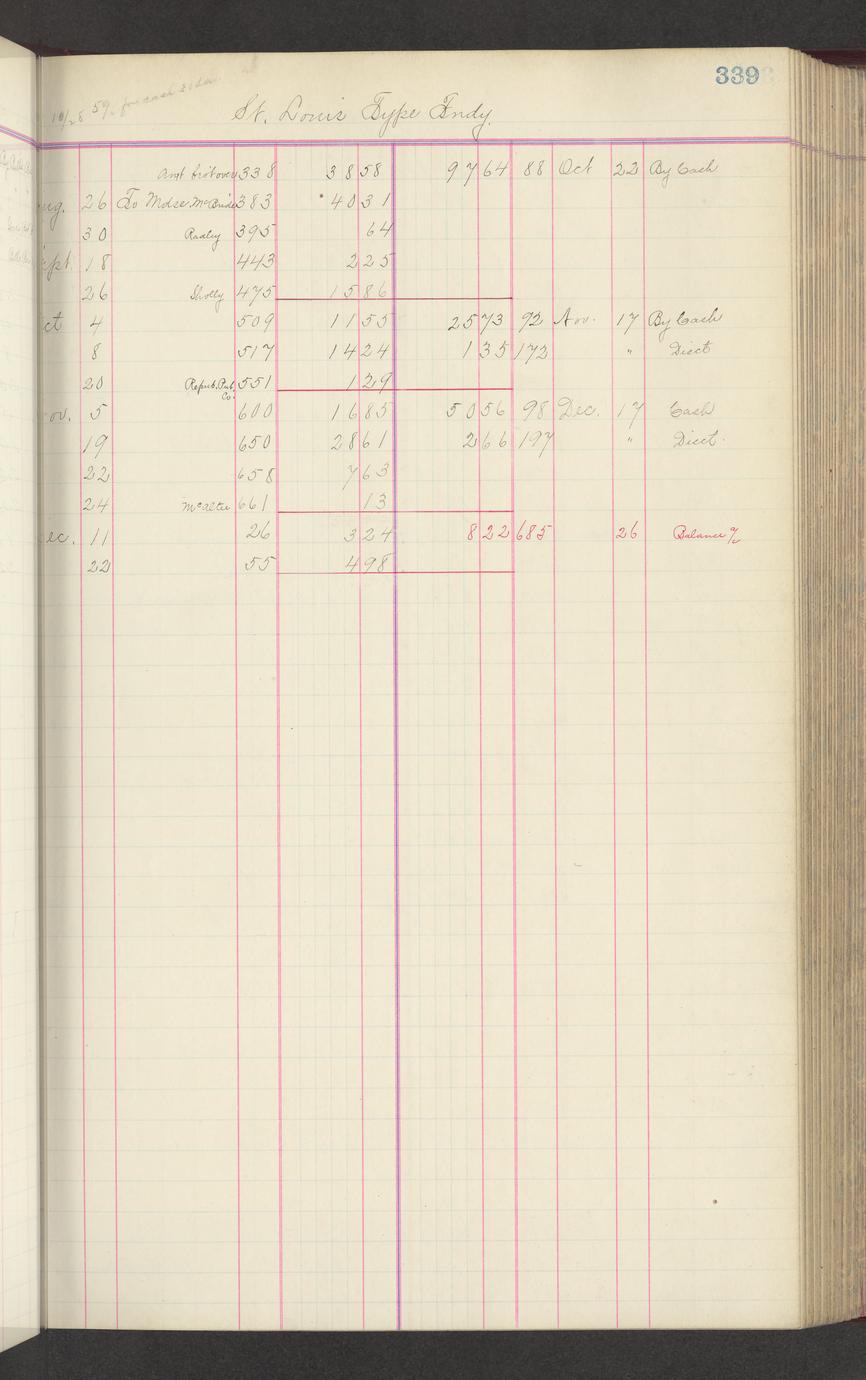 339
10/28 59. for cash
St. Louis Type Fndy.
Amt bro't over 338 38 58 97 64 88 Oct 22 By Cash
ug. 26 To Mdse. McBride 383 40 31
30 Radley 395 64
ept. 18 443 2 25
26 Sholly 475 15 86
ct 4 509 11 55 25 73 92 Nov. 17 By Cash
8 517 14 24 1 35 172 " Disct
20 Repub. Pub. Co. 551 1 29
ov. 5 600 16 85 50 56 98 Dec. 17 Cash
19 650 28 61 2 66 197 " Disct.
22 658 7 63
24 661 13
ec. 11 26 3 24 8 22 685 26 Balance %
22 55 4 98